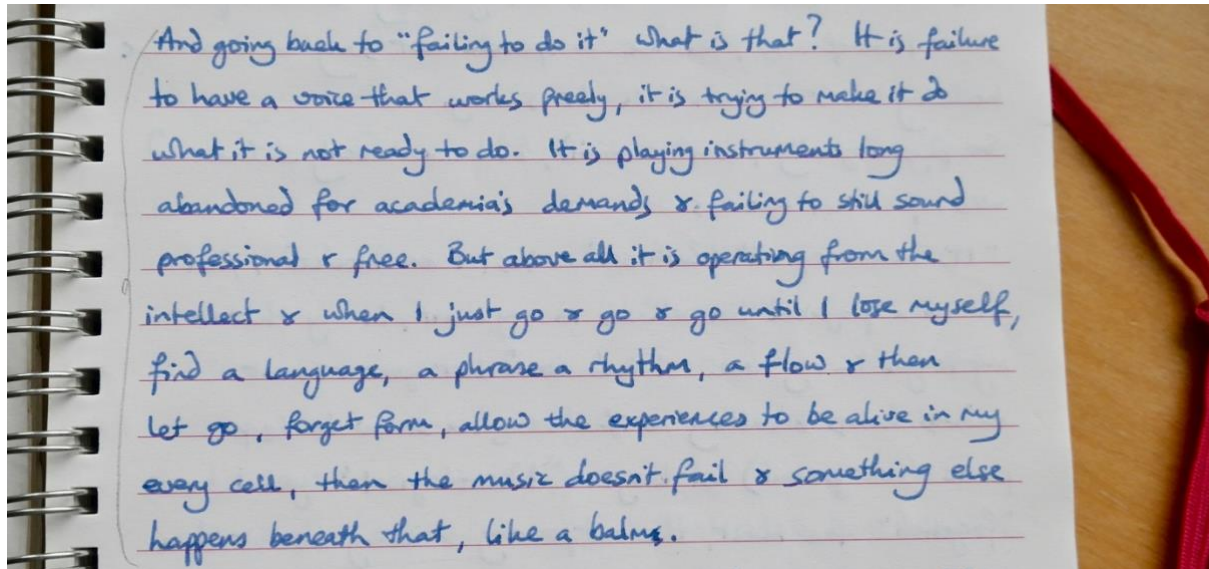 And going back to "failing to do it" what is that? It is failure
to have a voice that works freely, it is trying to make it do
what it is not ready to do. It is playing instruments long
abandoned for academia's demands & failing to still sound
professional & free. But above all it is operating from the
intellect & when I just go & go & go until I lose myself,
find a language, a phrase a rhythm, a flow & then
let go, forget form, allow the experiences to be alive in my
every cell, then the music doesn't fail & something else
happens beneath that, like a balm.